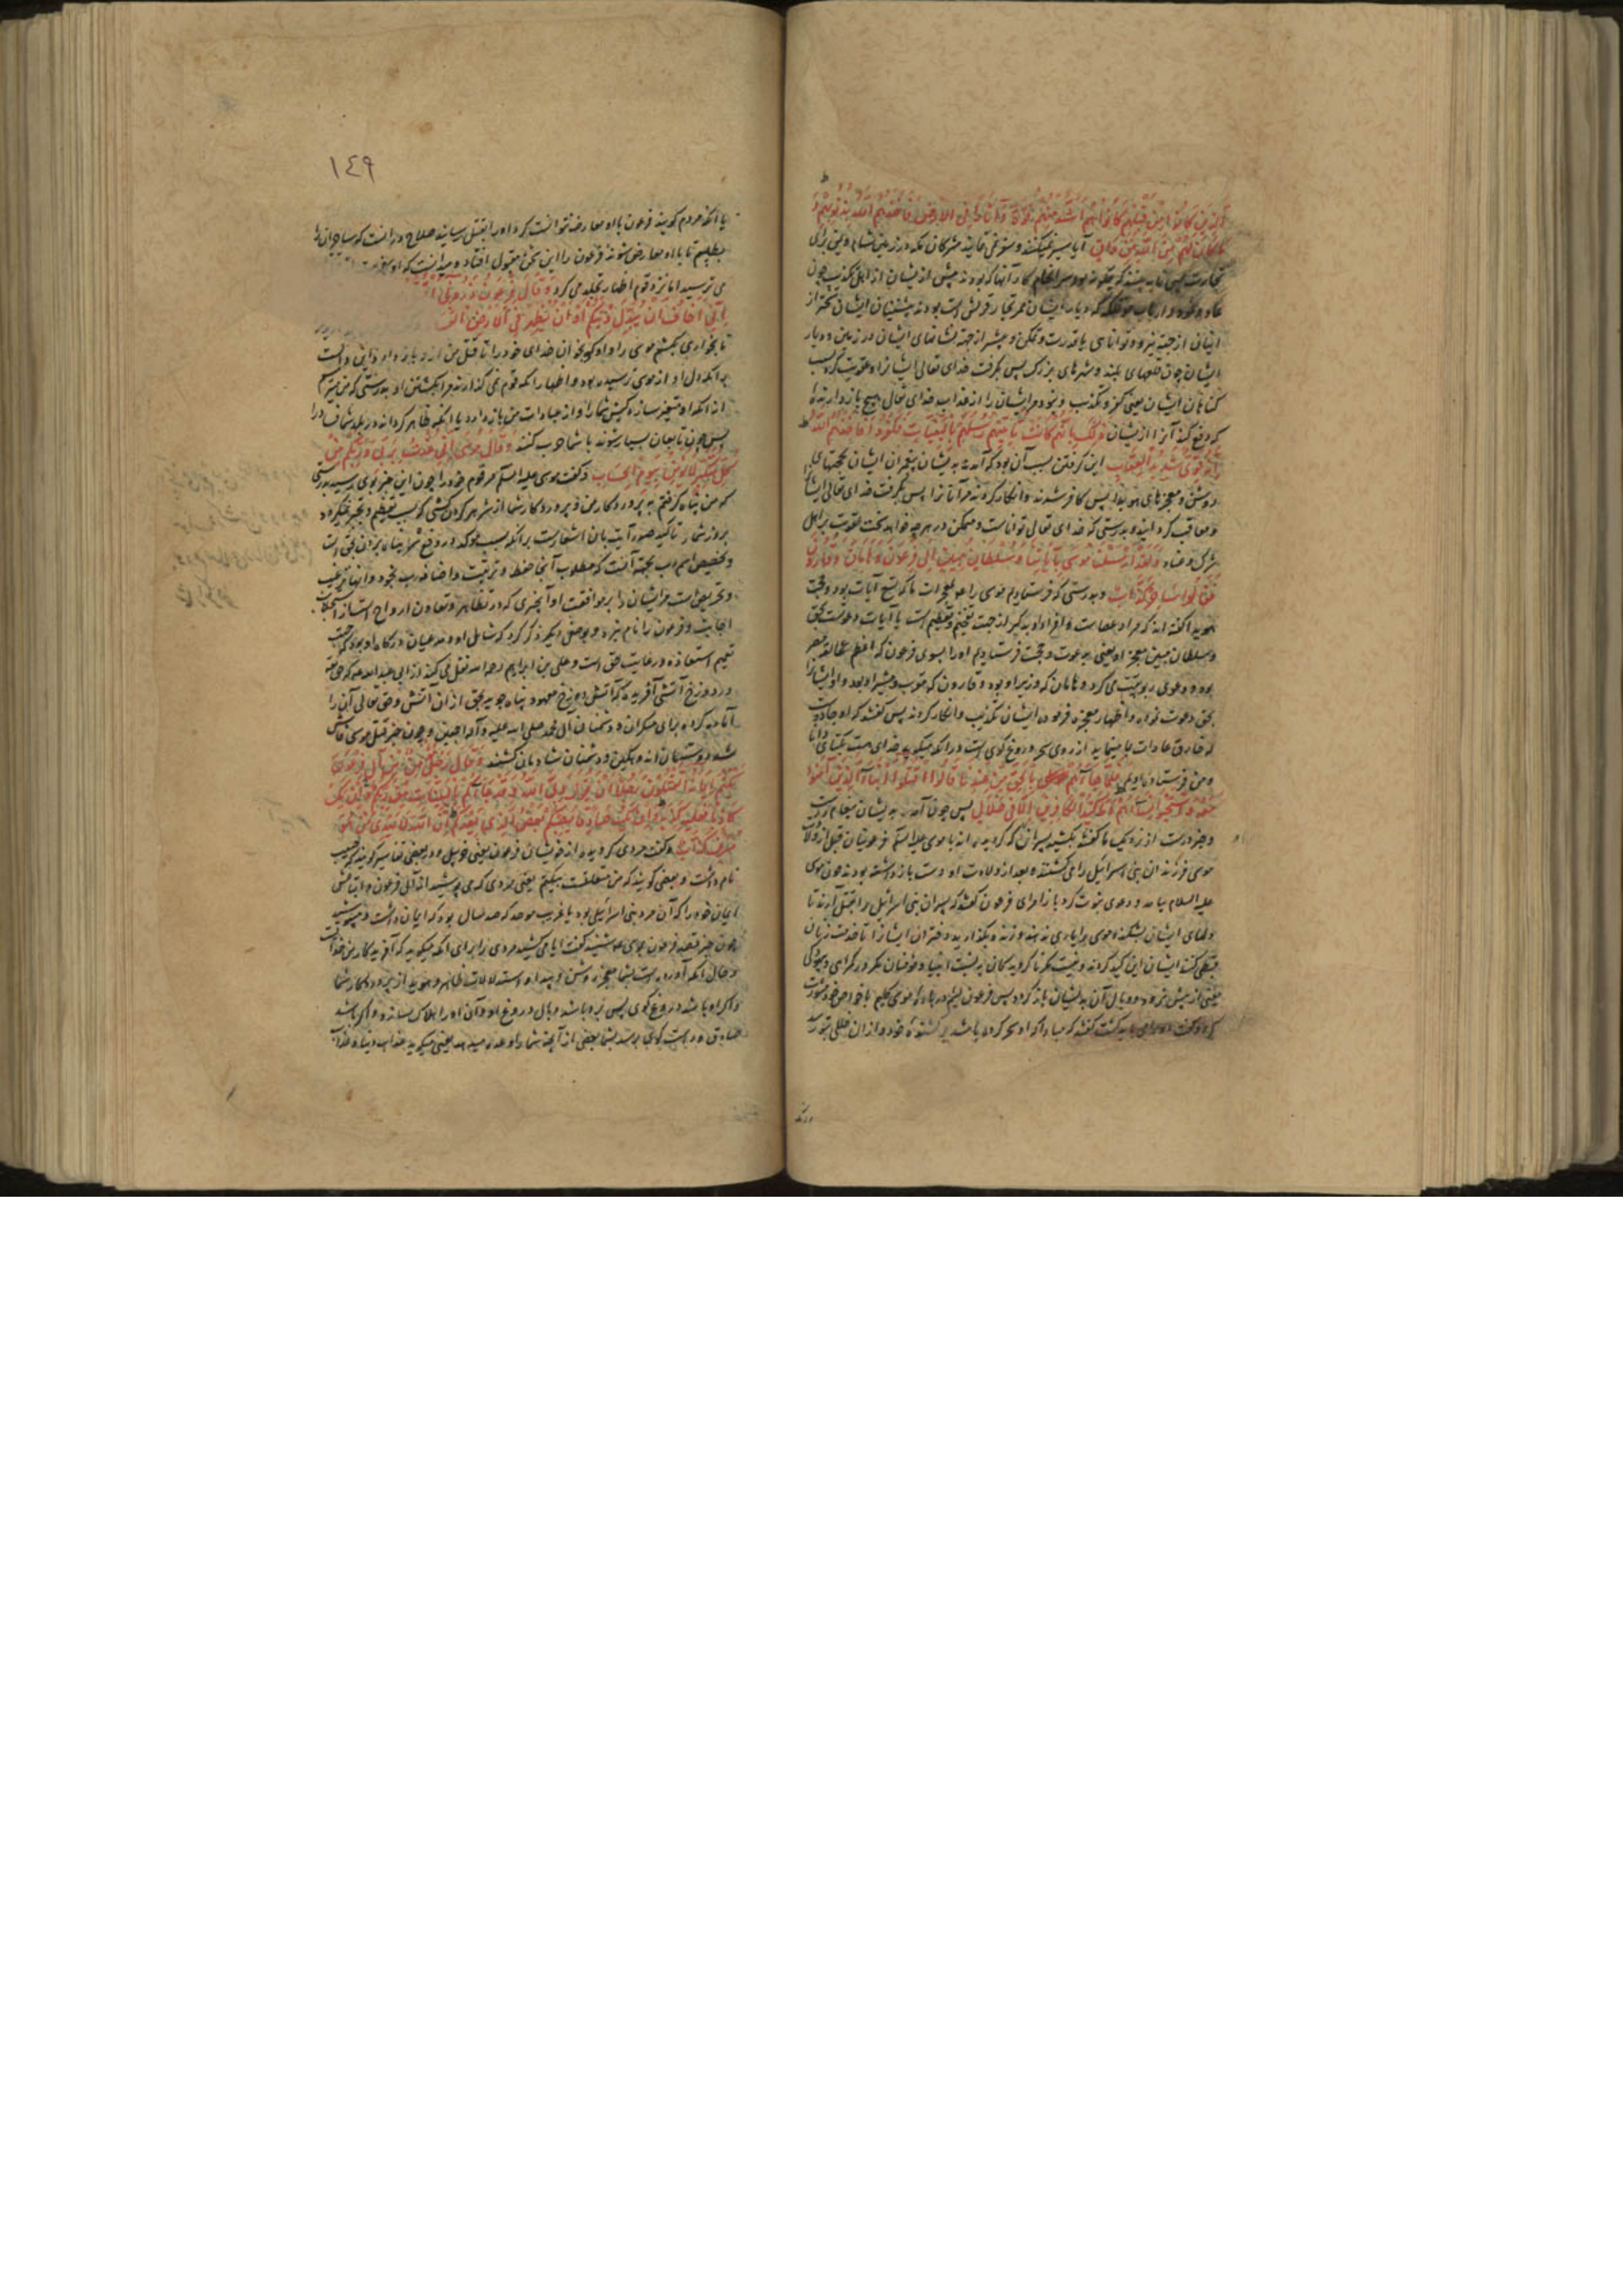 الذین کانوا من قبلهم کانوا هم اشد منهم قوة و آثارا فی الارض فاخذهم الله بذنوبهم و
ما کان لهم من الله من واق آیا سیر نمیکنند و سفر نمی نمایند مشرکان مکه در زمین شام و یمن برای
تجارت پس تا به بینند که چگونه بود سرانجام کار آنها که بودند پیش از ایشان از اهل تکذیب چون
عاد و ثمود و ارباب مؤتفکه که دیار ایشان ممر تجار قریش است بودند پیشینیان ایشان سخت تر از
اینان از جهت نیرو و توانایی یا قدرت و تمکن و بیشتر از جهة نشانهای ایشان در زمین و دیار
ایشان چون قلعهای بلند و شهرهای بزرگ پس بگرفت خدای تعالی ایشانرا و عقوبت کرد بسبب
گناهان ایشان یعنی کفر و تکذیب و نبود مر ایشان را از عذاب خدای تعالی هیچ باز دارنده
که دفع کند آنرا از ایشان ذلک بانهم کانت تاتیهم رسلهم بالبینات فکفروا فاخذهم الله
انه قوی شدید العقاب این گرفتن بسبب آن بود که آمدند بدیشان پیغمبران ایشان بحجتهای
روشن و معجزهای هویدا پس کافر شدند و انکار کردند مر آنانرا پس بگرفت خدای تعالی ایشانرا
و معاقب گردانید و بدرستی که خدای تعالی تواناست و متمکن در هر چه خواهد سخت عقوبت بر اهل
شرک و عناد و لقد ارسلنا موسی بآیاتنا و سلطان مبین الی فرعون و هامان و قارون
فقالوا ساحر کذاب و بدرستی که فرستادیم موسی را بمعجزات ما که تسع آیات بود و حجت
هویدا گفته اند که مراد عصاست و افراد او بذکر از جهت تفخیم و تعظیم است یا آیات دعوتست بحق
و سلطان مبین معجزه او یعنی بدعوت و حجت فرستادیم او را بسوی فرعون که اعظم عمالقه مصر
بود و دعوی ربوبیت می کرد و هامان که وزیر او بود و قارون که مقرب و مشیر او بود و او ایشانرا
بحق دعوت نمود و اظهار معجزه فرمود ایشان تکذیب و انکار کردند پس گفتند که او جادوست
که خارق عادات بما مینماید از روی سحر و دروغ گوی است در آنکه میگوید خدای هست یکتای دانا
و من فرستاده اویم فلما جاءهم بالحق من عندنا قالوا اقتلوا ابناء الذین آمنوا
معه و استحیوا نساءهم و ما کید الکافرین الا فی ضلال پس چون آمد بدیشان پیغام درست
و خبر درست از نزدیک ما گفتند بکشید پسران آنان که گرویده اند با موسی علیه السلم فرعونیان قبل از ولادت
موسی فرزندان بنی اسرائیل را می کشتند و بعد از ولادت او دست باز داشته بودند چون موسی
علیه السلام بیامد و دعوی نبوت کرد باز امرای فرعون گفتند که پسران بنی اسرائیل را بقتل آرند تا
دلهای ایشان بشکند و موسی را یاری ندهند و زنده بگذارید دختران ایشانرا تا خدمت زنان
قبطی کنند ایشان این کید کردند و نیست مکر ناگرویدگان به نسبت انبیا و مؤمنان مگر در گمراهی و بیهودگی
یعنی از پیش نرود و وبال آن بدیشان باز گردد پس فرعون لئیم در باره موسی کلیم با خواص خود مشورت
کرد و گفت او را می باید کشت گفتند که مبادا که او سحر کرده باشد بر کشنده خود و از آن خللی بتو رسد
١٤٩
یا آنکه مردم گویند فرعون با او معارضه نتوانست کرد او را بقتل رسانید صلاح در آنست که ساحران را
بطلبیم تا با او معارض شوند فرعون را این سخن مقبول افتاد و میدانست که او
می ترسید اما نزد قوم اظهار تجلد می کرد و قال فرعون ذرونی
انی اخاف ان یبدل دینکم او ان یظهر فی الارض الفساد
تا بخواری بکشم موسی را و او گو بخوان خدای خود را تا قتل من از او باز دارد و این دالست
بر آنکه دل او از موسی ترسیده بود و اظهار آنکه قوم نمی گذارند مرا بکشتن او بدرستی که من میترسم
از آنکه او متغیر سازد کیش شما را و از عبادت من باز دارد یا آنکه ظاهر گرداند در بلاد شما فساد را
پس چون تابعان بسیار شوند با شما حرب کنند و قال موسی انی عذت بربی و ربکم من
کل متکبر لا یؤمن بیوم الحساب و گفت موسی علیه السلم مر قوم خود را چون این خبر بوی رسید بدرستی
که من پناه گرفتم به پروردگار من و پروردگار شما از شر هر گردن کشی که بسبب تعظیم و تجبر نمیگرود
بروز شمار تاکید صدر آیت بان اشعارست بر آنکه سبب مؤکد در دفع شر پناه بردن بحق است
و تخصیص اسم رب بجهة آنست که مطلوب آنجا حفظ و تربیت و اضافه رب بخود و بانها ترغیب
و تحریص است مر ایشان را بر موافقت او
اجابت و فرعون را نام نبرد و بوصفی دیگر ذکر کرد که شامل او و مدعیان درگاه او بود که جهت
تعمیم استعاذه و رعایت حق است و علی بن ابراهیم رحمه الله نقل می کند از ابی عبد الله ع که حق تعالی
در دوزخ آتشی آفریده که آتش دوزخ معهود پناه جوید بحق از آن آتش و حق تعالی آن را
آماده کرده برای متکبران و دشمنان آل محمد صلی الله علیه و آله اجمعین و چون خبر قتل موسی فاش
شد دوستان اندوهگین و دشمنان شادمان گشتند و قال رجل مؤمن من آل فرعون
یکتم ایمانه اتقتلون رجلا ان یقول ربی الله و قد جاءکم بالبینات من ربکم و ان یک
کاذبا فعلیه کذبه و ان یک صادقا یصبکم بعض الذی یعدکم ان الله لا یهدی من هو
مسرف کذاب و گفت مردی گرویده از خویشان فرعون یعنی خربیل و در بعضی تفاسیر گویند که حبیب
نام داشت و بعضی گویند که من متعلقست بیکتم یعنی مردی که می پوشید از آل فرعون و اتباعش
ایمان خود را که آن مرد بنی اسرائیلی بود یا غریب موحد که صد سال بود که ایمان داشت و میپوشید
چون خبر قصد فرعون بموسی ع شنید گفت آیا می کشید مردی را برای آنکه میگوید که آفریدگار من خداست
و حال آنکه آورده است بشما معجزه روشن و پیدا و استدلالات ظاهر و هویدا از پروردگار شما
و اگر او باشد دروغ گوی پس برو باشد وبال دروغ او و آن او را هلاک سازد و اگر باشد
صادق و راست گوی برسد بشما بعضی از آنچه شما را وعده میدهد یعنی میگوید عذاب دنیا و عذاب